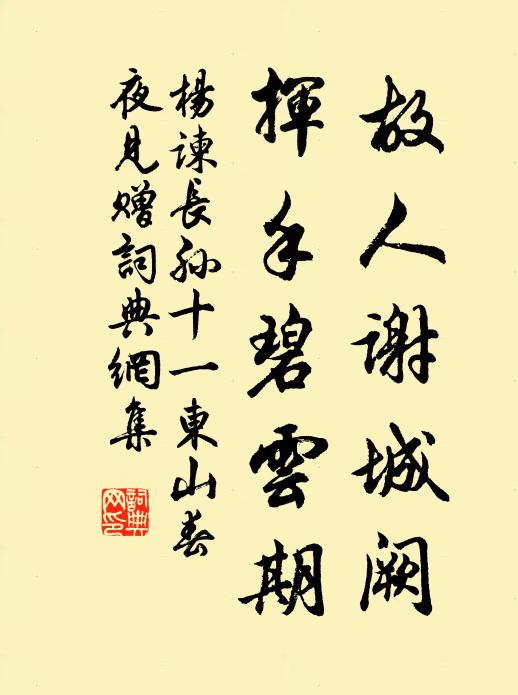 故人谢城阙
揮手碧雲期
楊諫長孙十一東山春
夜見赠詞典網集
詞典
网印